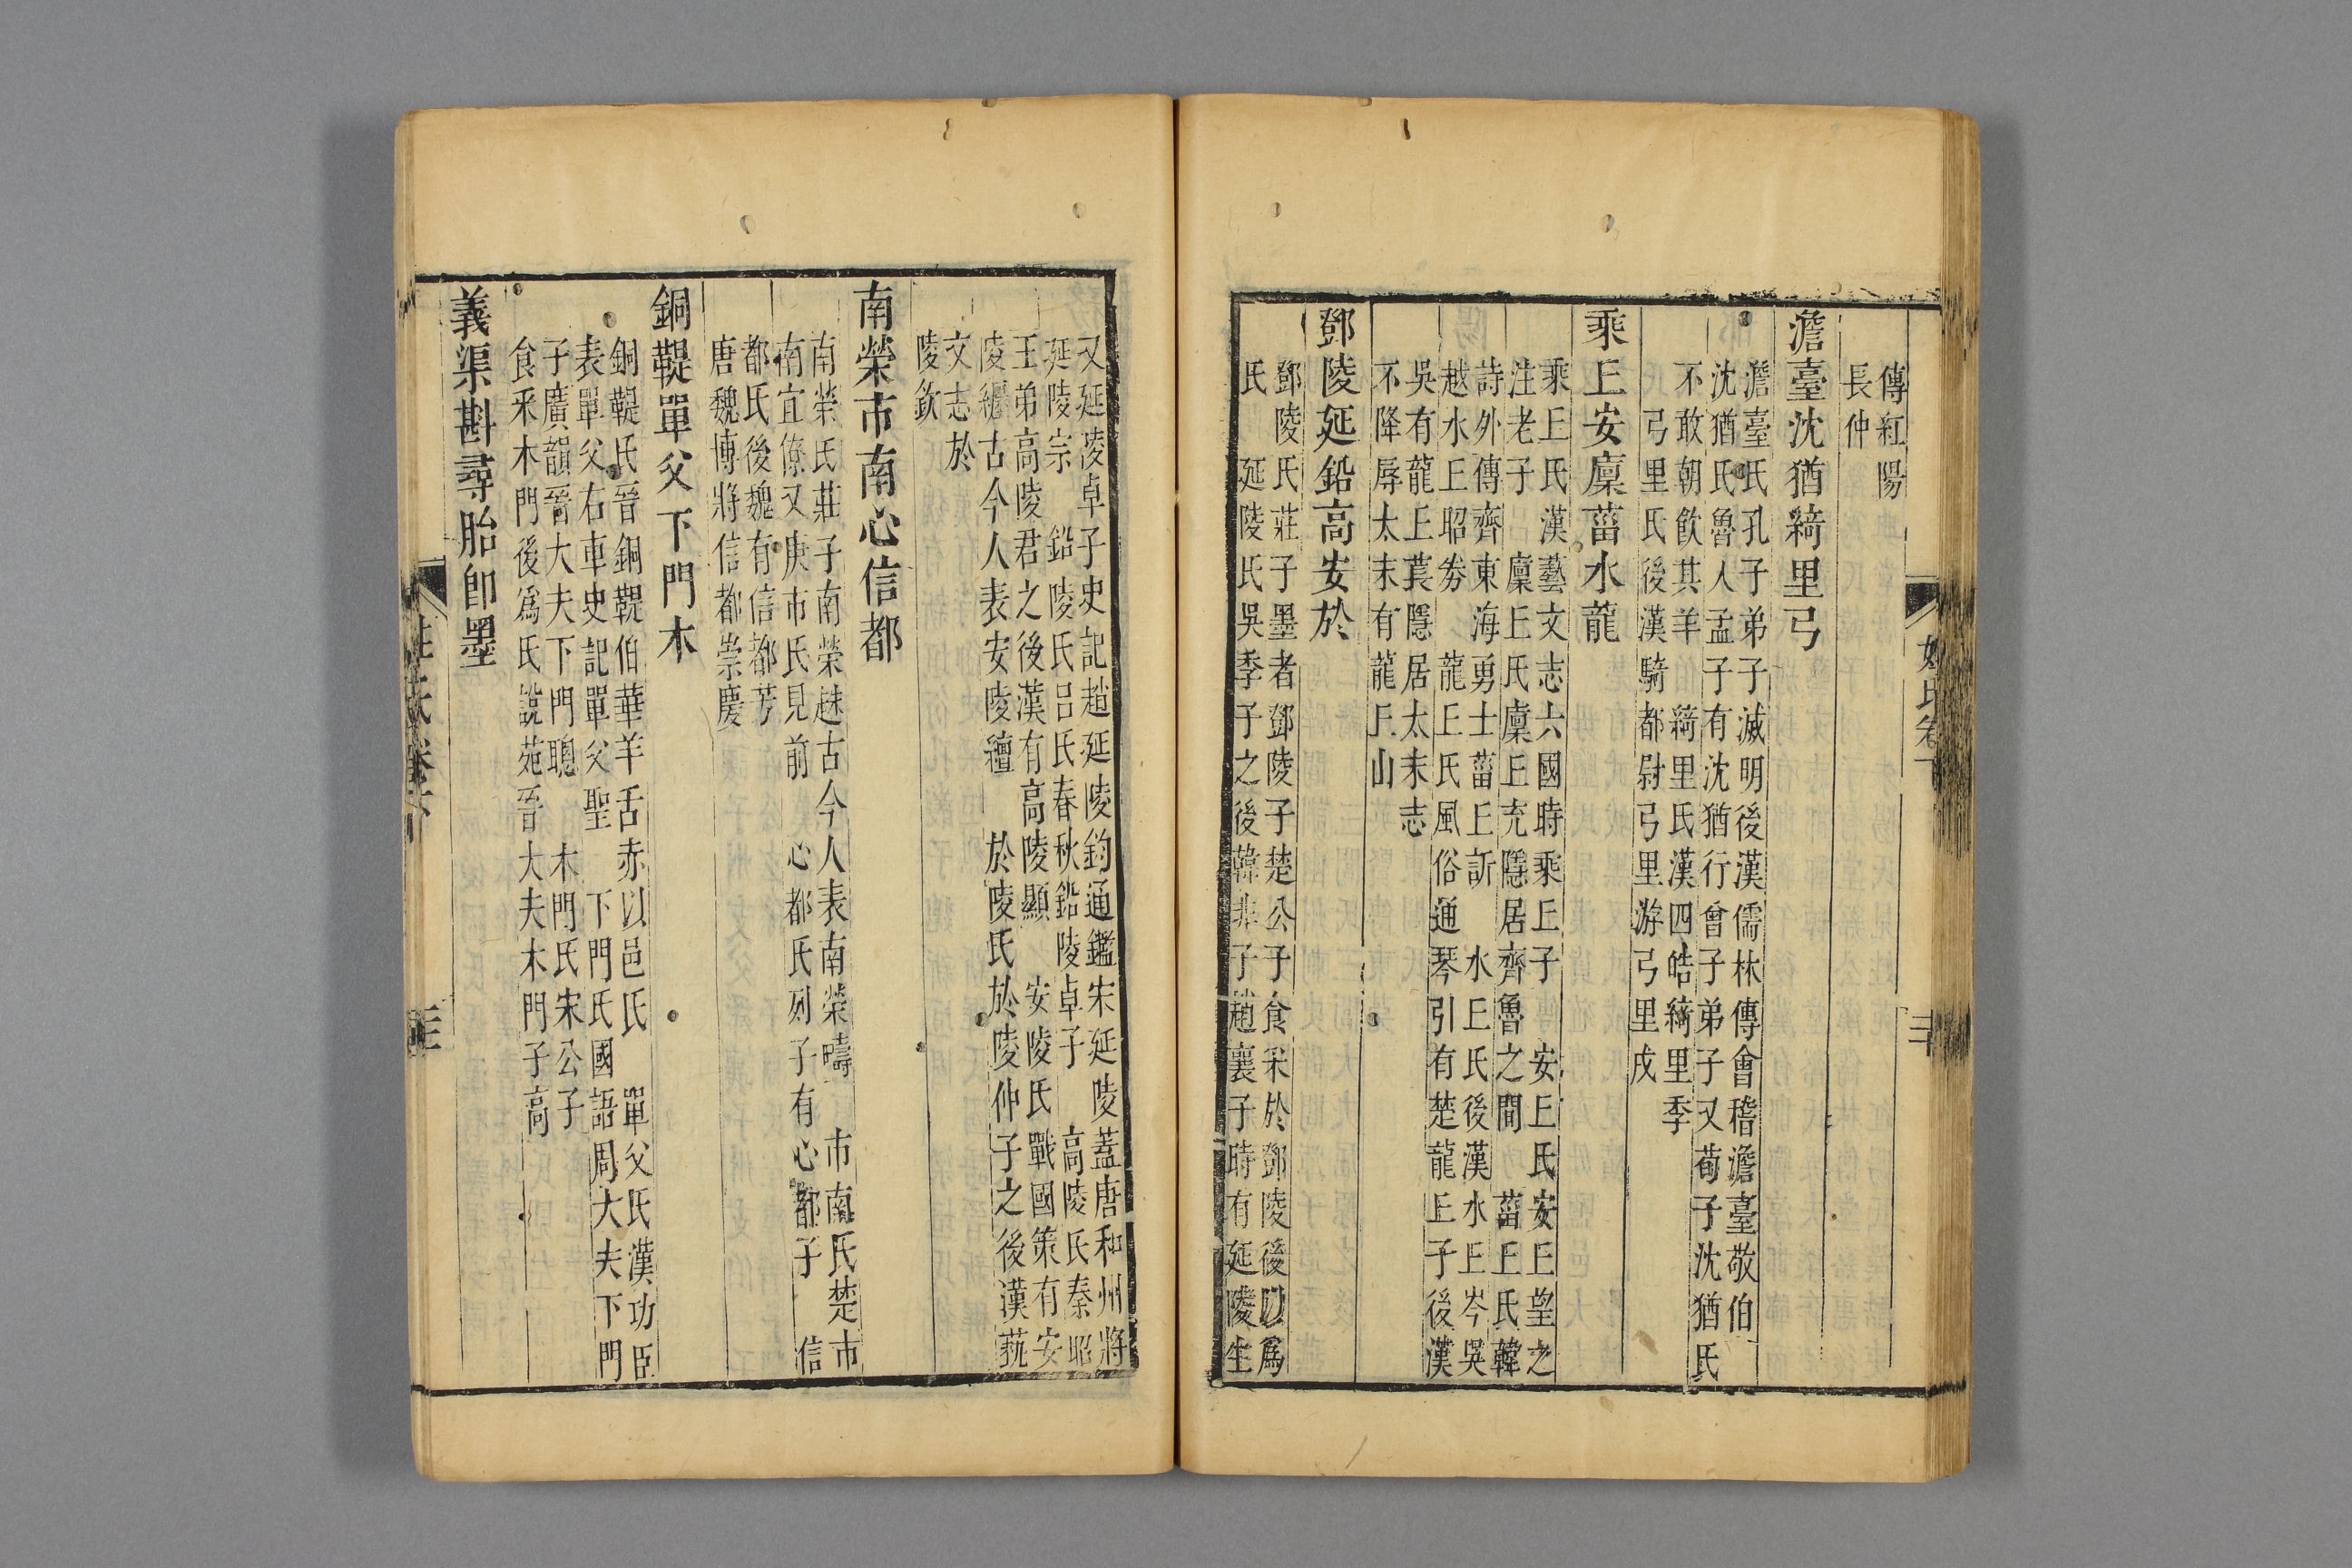 傳紅陽
長仲
澹臺沈猶綺里弓
澹臺氏孔子弟子滅明後漢儒林傳會稽澹臺敬伯
沈猶氏魯人孟子有沈猶行曾子弟子又荀子沈猶氏
不敢朝飲其羊 綺里氏漢四皓綺里季
弓里氏後漢騎都尉弓里游弓里戍
乘丘安廩菑水龍
乘丘氏漢藝文志六國時乘丘子 安丘氏安丘望之
注老子 廩丘氏廩丘充隱居齊魯之間 菑丘氏韓
詩外傳齊東海勇士菑丘訢 水丘氏後漢水丘岑吳
越水丘昭券 龍丘氏風俗通琴引有楚龍丘子後漢
吳有龍丘萇隱居太末志
不降辱太末有龍丘山
鄧陵延鉛高安於
鄧陵氏莊子墨者鄧陵子楚公子食采於鄧陵後以爲
氏 延陵氏吳季子之後韓非子趙襄子時有延陵生
姓氏卷下
二十
又延陵卓子史記趙延陵鈞通鑑宋延陵蓋唐和州將
延陵宗 鉛陵氏呂氏春秋鉛陵卓子 高陵氏秦昭
王弟高陵君之後漢有高陵顯 安陵氏戰國策有安
陵纏古今人表安陵繵 於陵氏於陵仲子之後漢藝
文志於
陵欽
南榮市南心信都
南榮氏莊子南榮趎古今人表南榮疇 市南氏楚市
南宜僚又庚市氏見前 心都氏列子有心都子 信
都氏後魏有信都芳
唐魏博將信都崇慶
銅鞮單父下門木
銅鞮氏晉銅鞮伯華羊舌赤以邑氏 單父氏漢功臣
表單父右車史記單父聖 下門氏國語周大夫下門
子廣韻晉大夫下門聰 木門氏宋公子
食采木門後爲氏說苑晉大夫木門子高
義渠斟尋胎卽墨
姓氏卷下